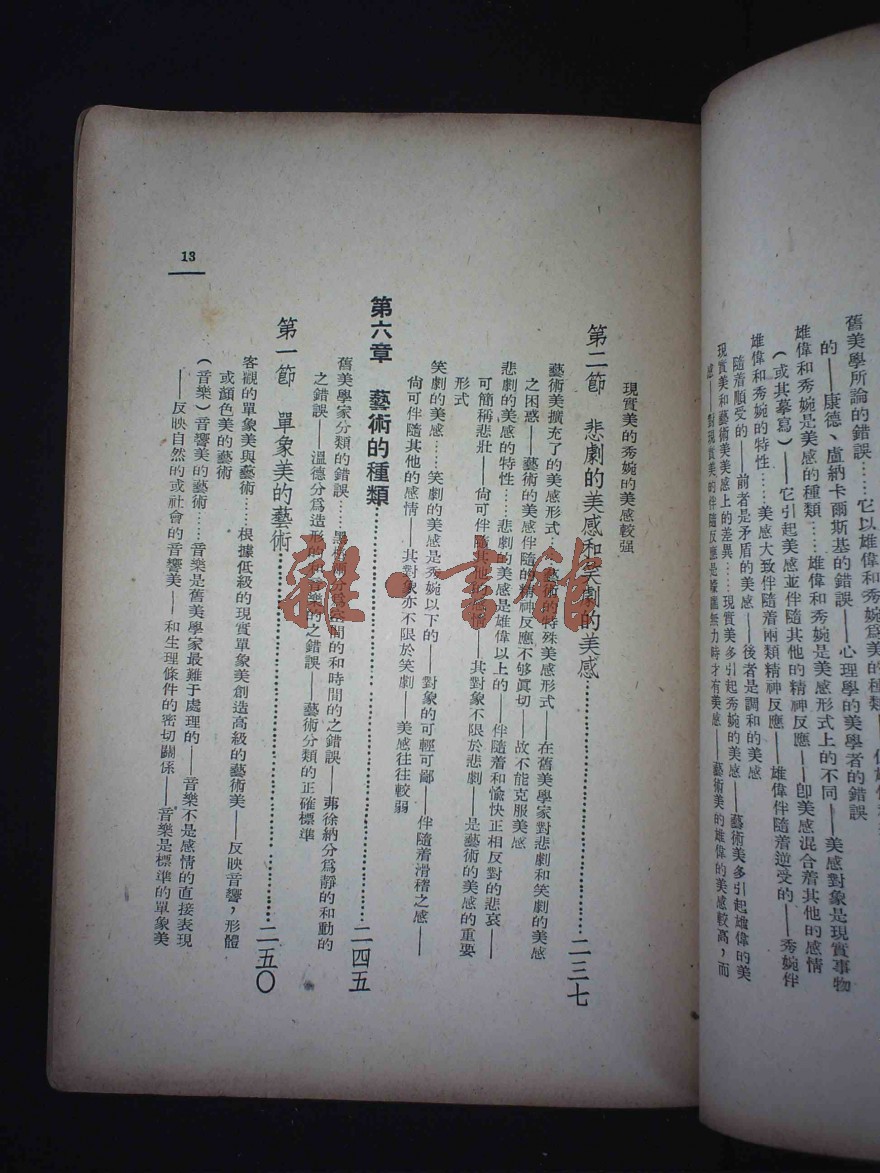 舊美學所論的錯誤……它以雄偉和秀婉爲美的種類
的——康德、盧納卡爾斯基的錯誤——心理學的美學者的錯誤
雄偉和秀婉是美感的種類……雄偉和秀婉是美感形式上的不同——美感對象是現實事物
（或其摹寫）——它引起美感並伴隨其他的精神反應——卽美感混合着其他的感情
雄偉和秀婉的特性……美感大致伴隨着兩類精神反應——雄偉伴隨着逆受的——秀婉伴
隨着順受的——前者是矛盾的美感——後者是調和的美感
現實美和藝術美美感上的差異……現實美多引起秀婉的美感——藝術美多引起雄偉的美
感——對現實美的伴隨反應是 無力時才有美感——藝術美的雄偉的美感較高，而
現實美的秀婉的美感較强
第二節 悲劇的美感和笑劇的美感……二三七
藝術美擴充了的美感形式……藝術的特殊美感形式——在舊美學家對悲劇和笑劇的美感
之困惑——藝術的美感伴隨的精神反應不够眞切——故不能克服美感
悲劇的美感的特性……悲劇的美感是雄偉以上的——伴隨着和愉快正相反對的悲哀——
可簡稱悲壯——尙可伴隨其他的感情——其對象不限於悲劇——是藝術的美感的重要
形式
笑劇的美感……笑劇的美感是秀婉以下的——對象的可輕可鄙——伴隨着滑稽之感——
尙可伴隨其他的感情——其對象亦不限於笑劇——美感往往較弱
第六章 藝術的種類……二四五
舊美學家分類的錯誤……黑格爾分爲空間的和時間的之錯誤——弗徐納分爲靜的和動的
之錯誤——溫德分爲造形的和音樂的之錯誤——藝術分類的正確標準
第一節 單象美的藝術……二五〇
客觀的單象美與藝術……根據低級的現實單象美創造高級的藝術美——反映音響，形體
或顏色美的藝術
（音樂）音響美的藝術……音樂是舊美學家最難于處理的——音樂不是感情的直接表現
——反映自然的或社會的音響美——和生理條件的密切關係——音樂是標準的單象美
13
雜·書館